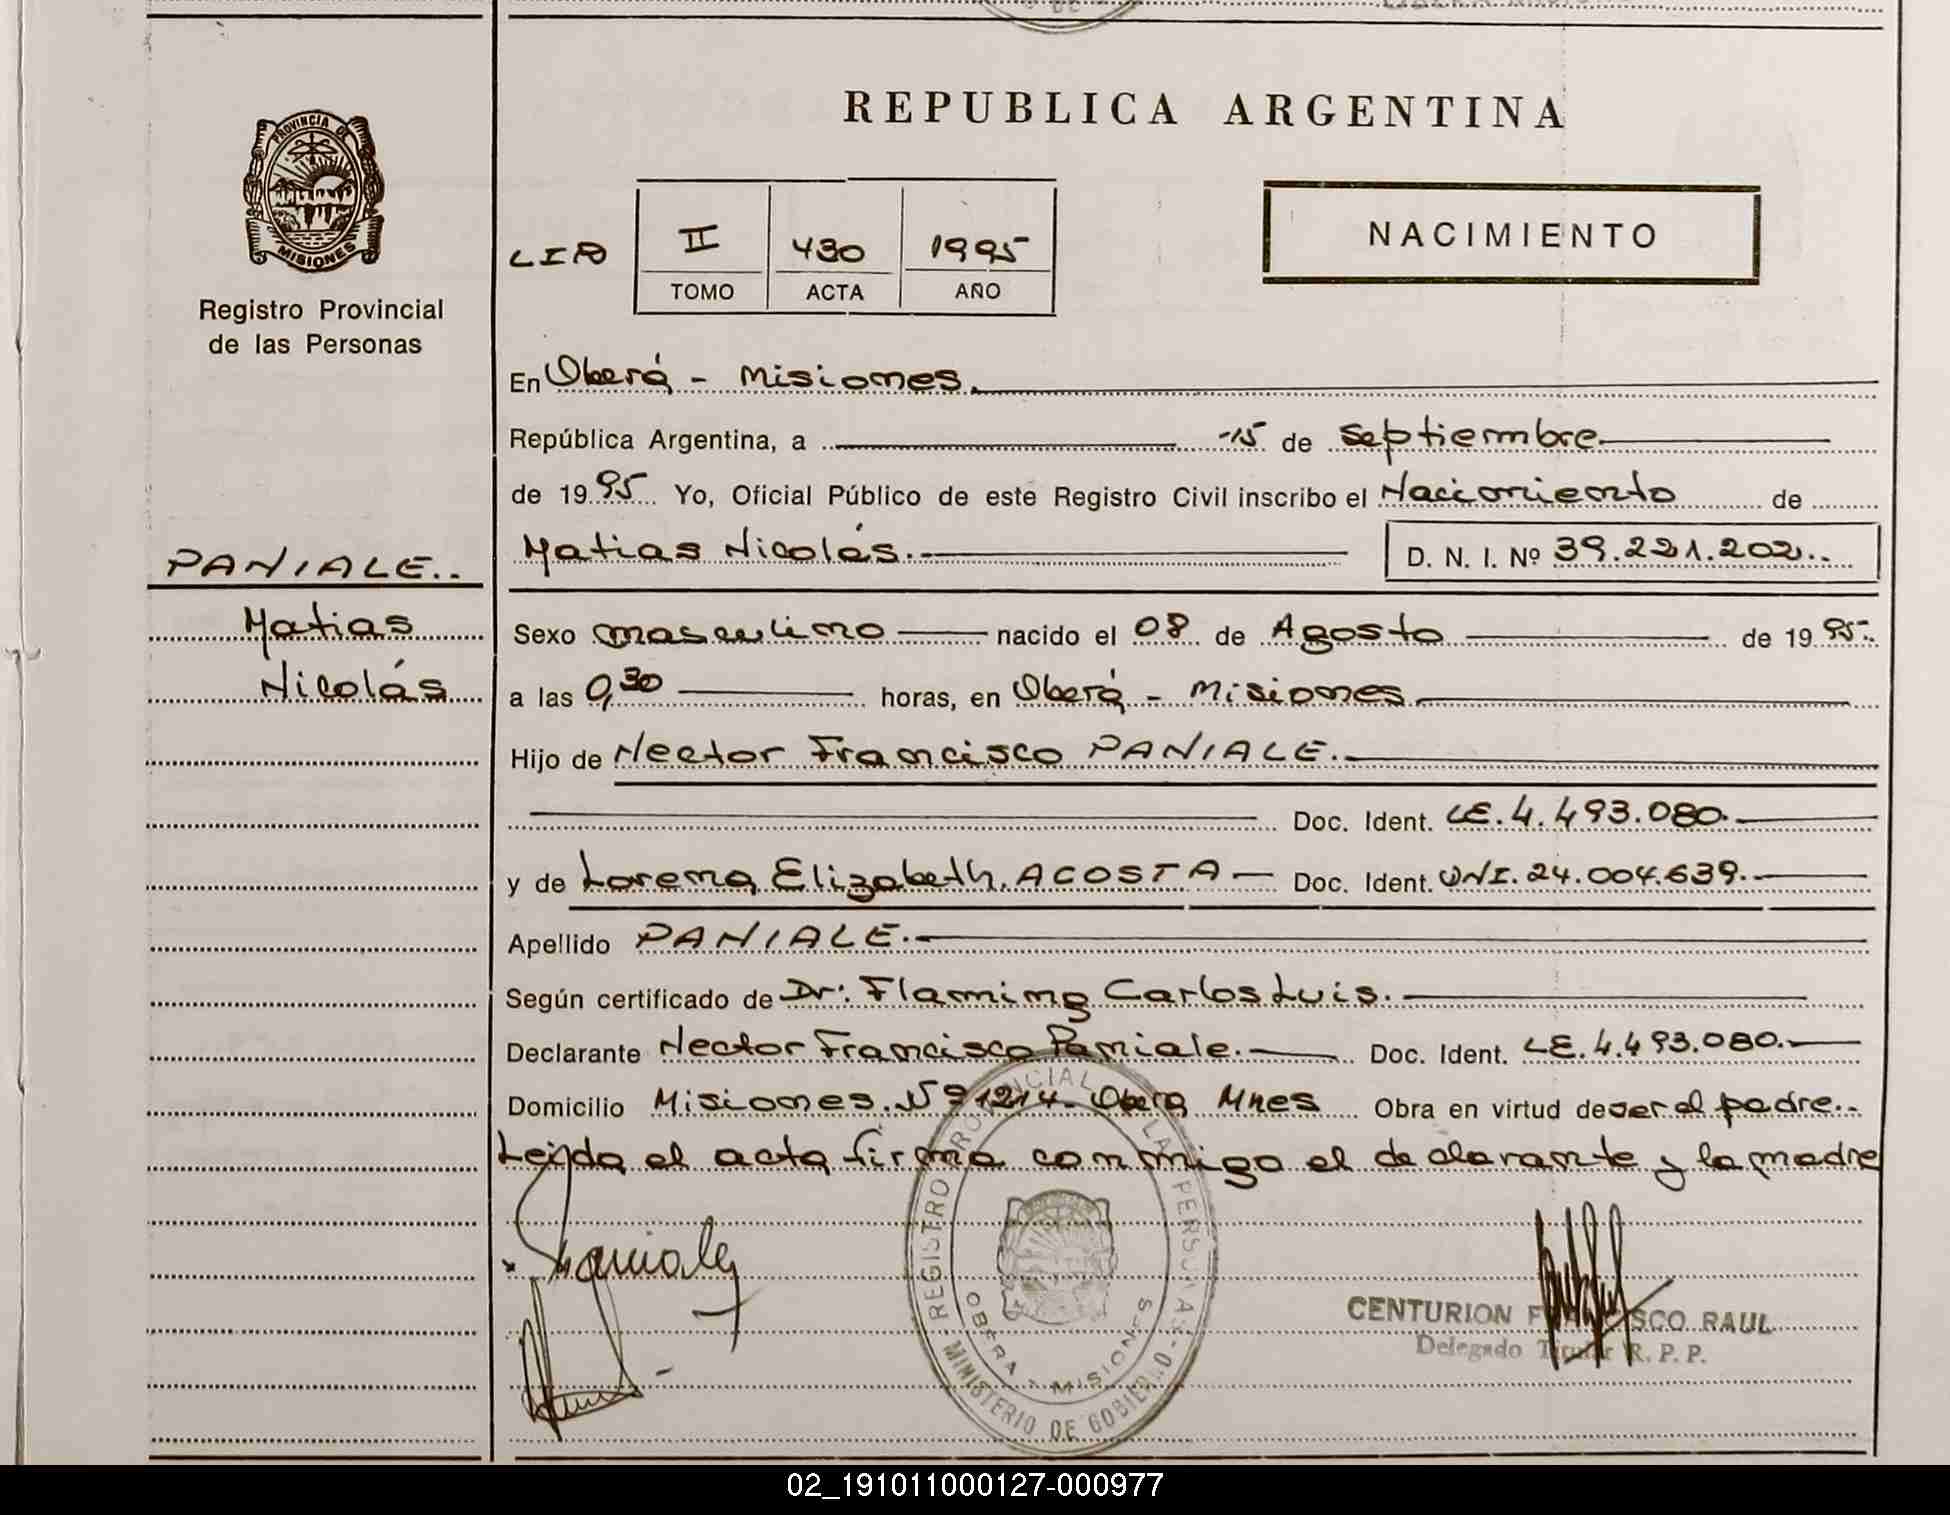 REPUBLICA ARGENTINA
PROVINCIA DE
MISIONES
Registro Provincial
de las Personas
NACIMIENTO
II 430 1995
TOMO ACTA AÑO
En Oberá - Misiones.
República Argentina, a 15 de Septiembre
de 1995 Yo, Oficial Público de este Registro Civil inscribo el Nacimiento de
Matias Nicolás. D. N. I. Nº 39.221.202..
PANIALE..
Matias
Nicolás
Sexo masculino nacido el 08 de Agosto de 1995.
a las 0,30 horas, en Oberá - Misiones
Hijo de Hector Francisco PANIALE.
Doc. Ident. LE. 4.493.080.
y de Lorena Elizabeth. ACOSTA Doc. Ident. DNI. 24.004.639.
Apellido PANIALE.
Según certificado de Dr. Flaming Carlos Luis.
Declarante Hector Francisco Paniale. Doc. Ident. LE. 4.493.080.
Domicilio Misiones. Nº 1214. Oberá Mnes Obra en virtud de ser el padre..
Leida el acta firma conmigo el declarante y la madre
REGISTRO PROVINCIAL DE LAS PERSONAS
OBERA - MISIONES
MINISTERIO DE GOBIERNO
CENTURION FRANCISCO RAUL
Delegado Titular R. P. P.
02_191011000127-000977